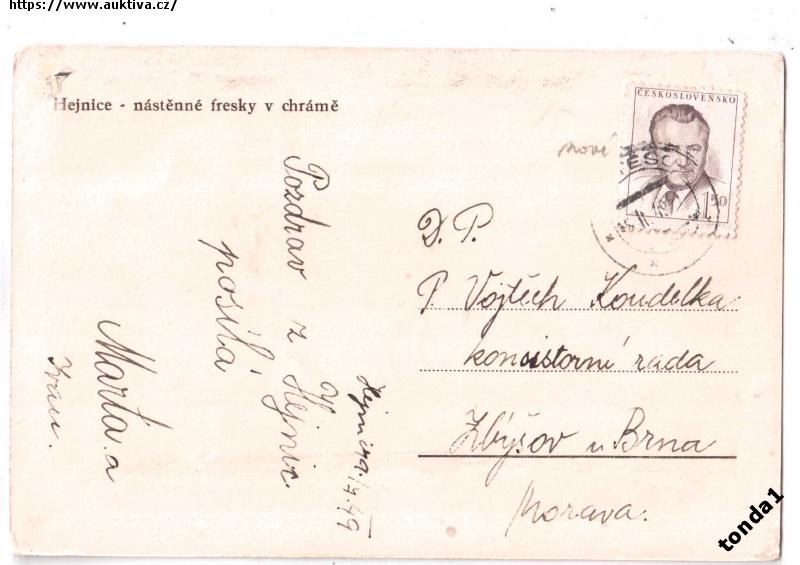 https://www.auktiva.cz/
Hejnice - nástěnné fresky v chrámě
ČESKOSLOVENSKO
1.50
nové
Pozdrav z Hejnic
posílá
Marta a
Ivan.
D. P.
P. Vojtěch Koudelka
konsistorní rada
Zbýšov u Brna
Morava.
tonda1